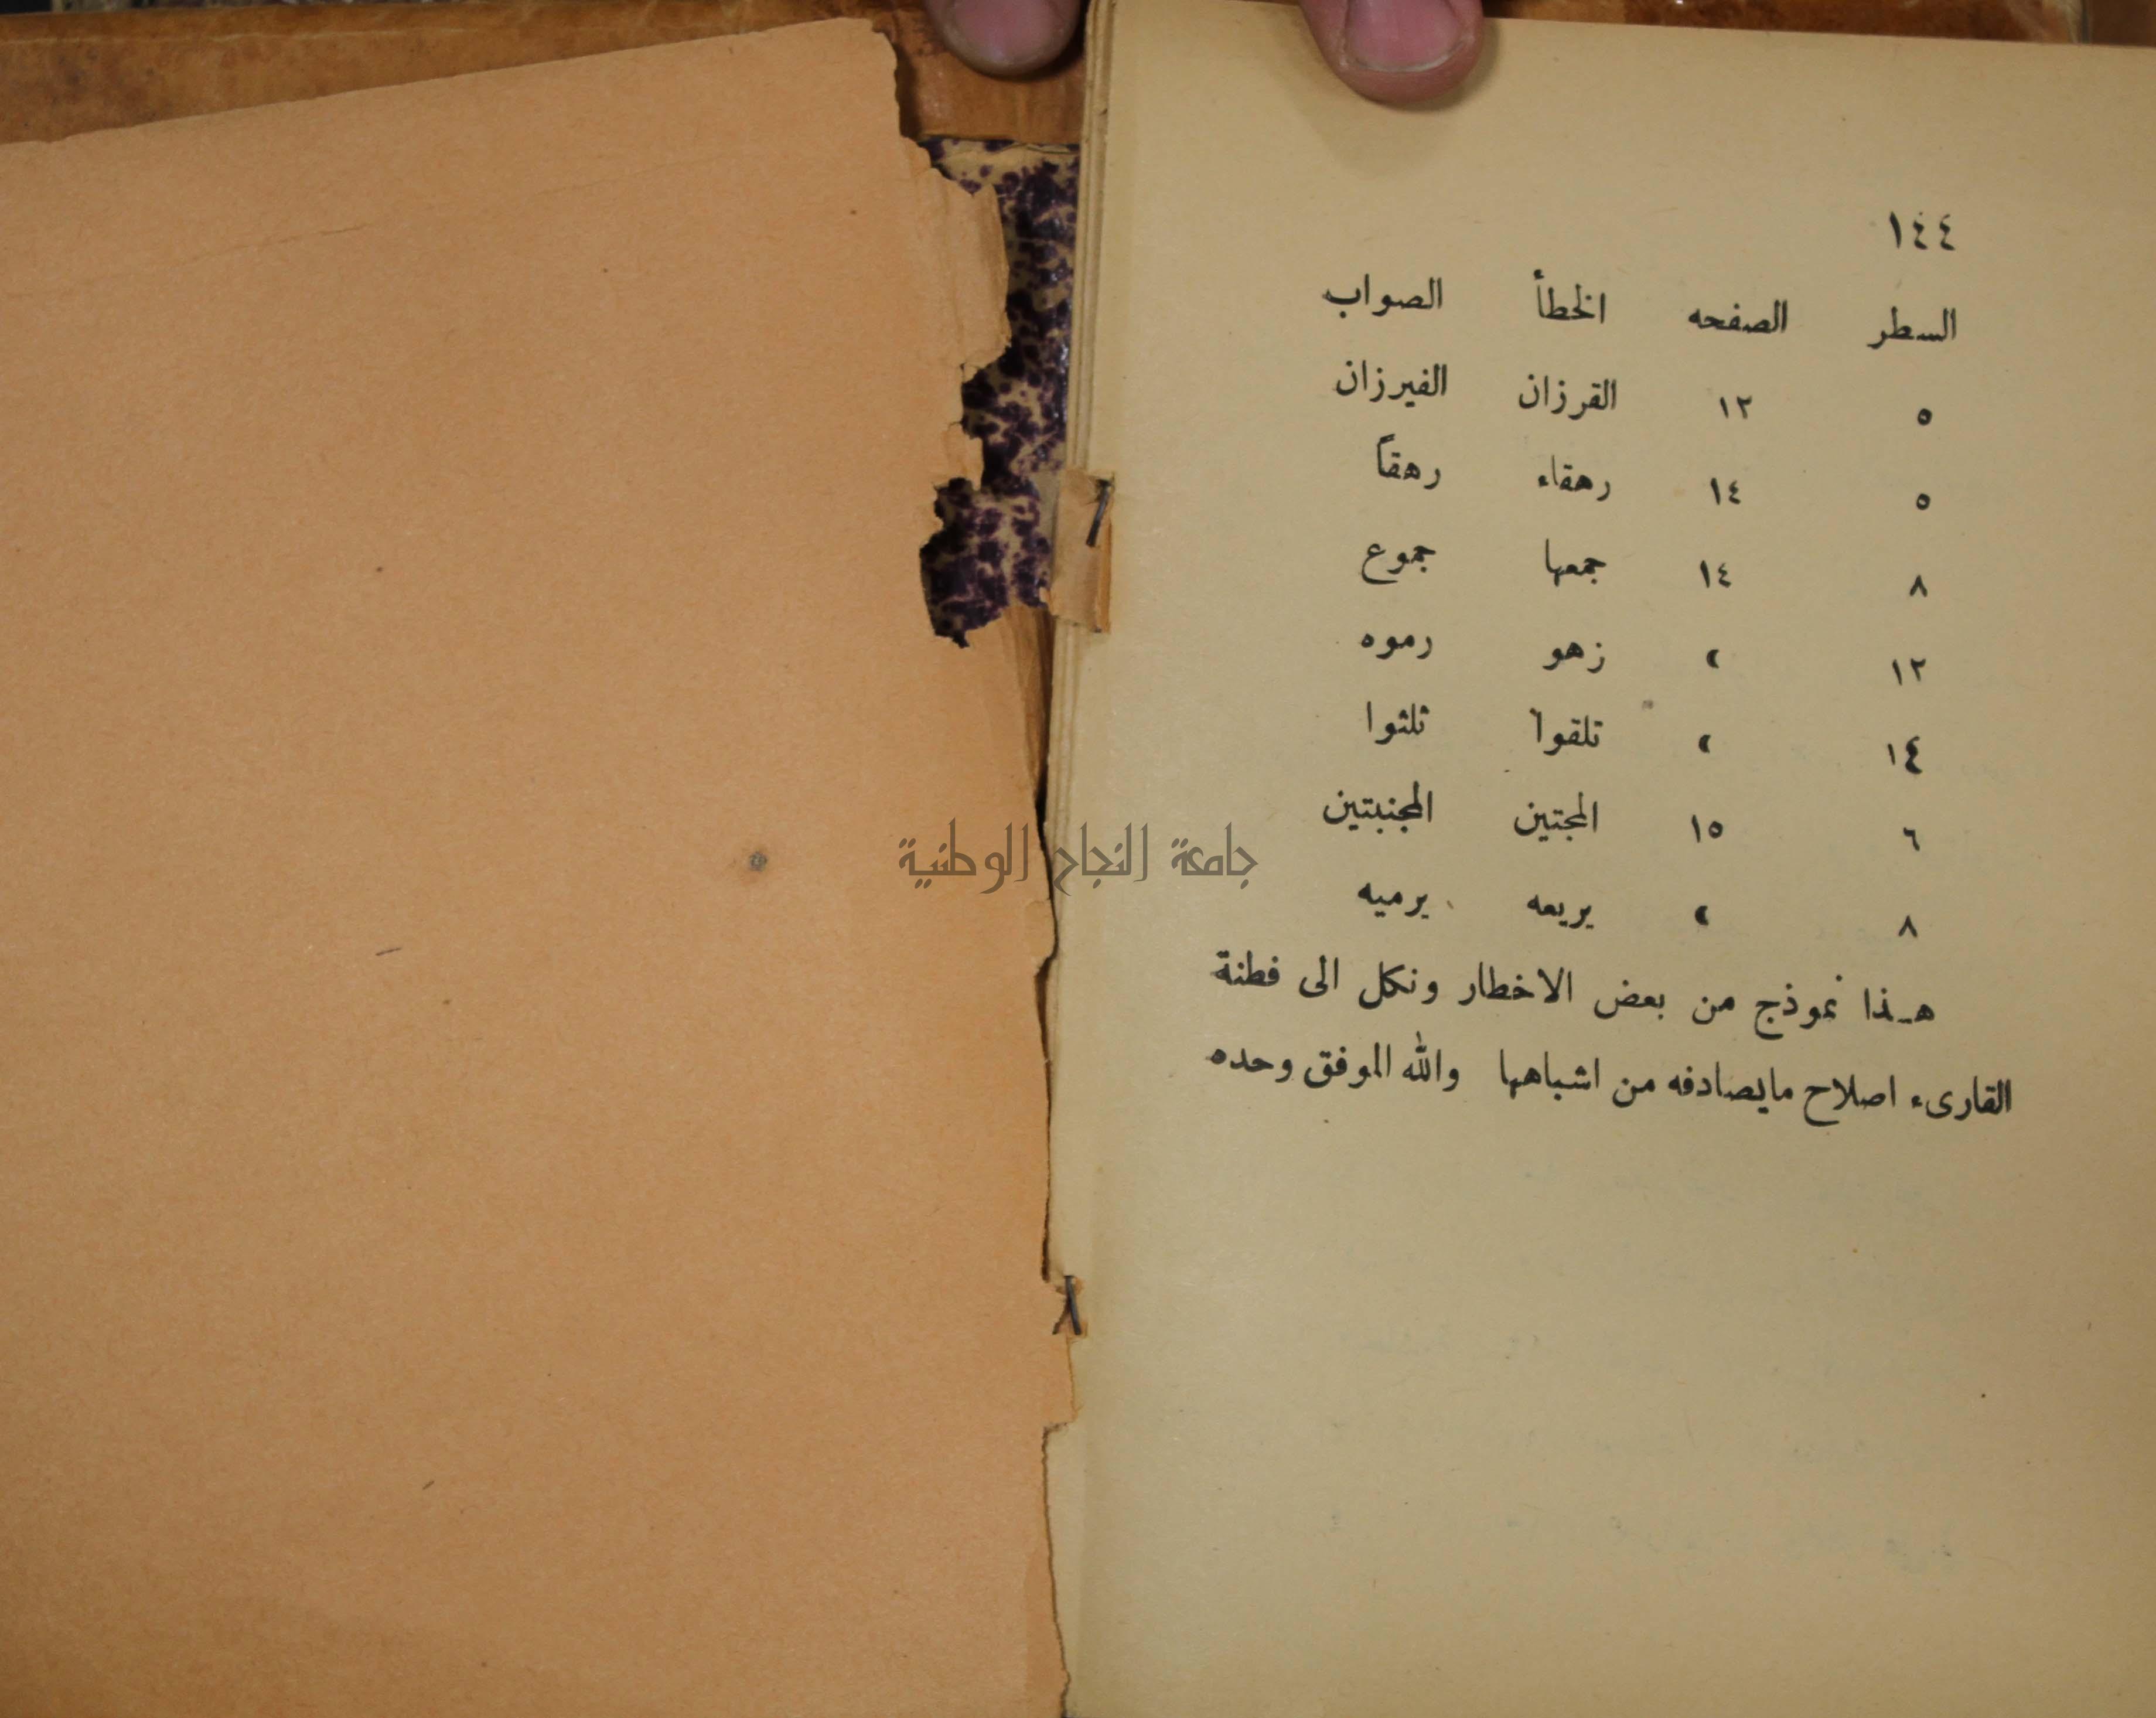 ١٤٤
السطر الصفحه الخطأ الصواب
٥ ١٢ القرزان الفيرزان
٥ ١٤ رهقاء رهقاً
٨ ١٤ جمعها جموع
١٢ » زهو رموه
١٤ » تلقوا ثلثوا
٦ ١٥ المجتين المجنبتين
٨ » يريعه يرميه
هـذا نموذج من بعض الاخطار ونكل الى فطنة
القارىء اصلاح مايصادفه من اشباهها والله الموفق وحده
جامعة النجاح الوطنية